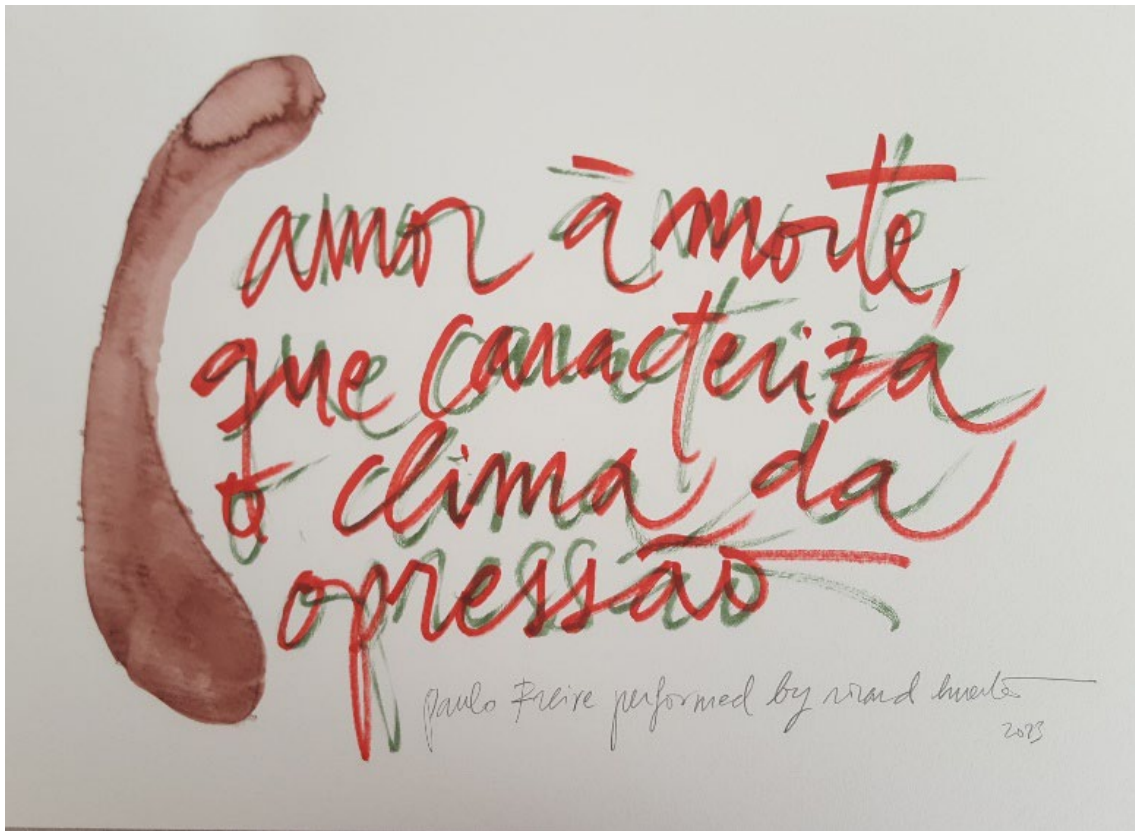 amor à morte,
que caracteriza
o clima da
opressão
paulo Freire performed by ricard huerta
2023